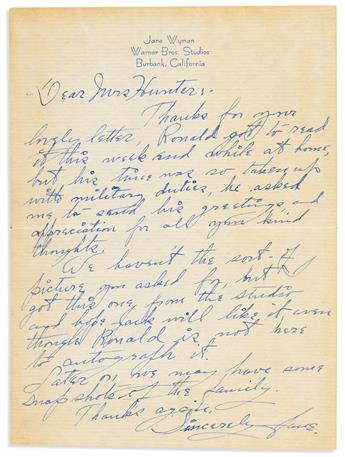 Jane Wyman
Warner Bros. Studios
Burbank, California
Dear Mrs Hunter:-
Thanks for your
lovely letter, Ronald got to read
it this week end while at home,
but his time was so taken up
with military duties, he asked
me to send his greetings and
appreciation for all your kind
thoughts.
We haven't the sort of
picture you asked for, but I
got this one from the studio
and hope Jack will like it even
though Ronald is not here
to autograph it.
Later on we may have some
snap shots of the family.
Thanks again,
Sincerely Jane.